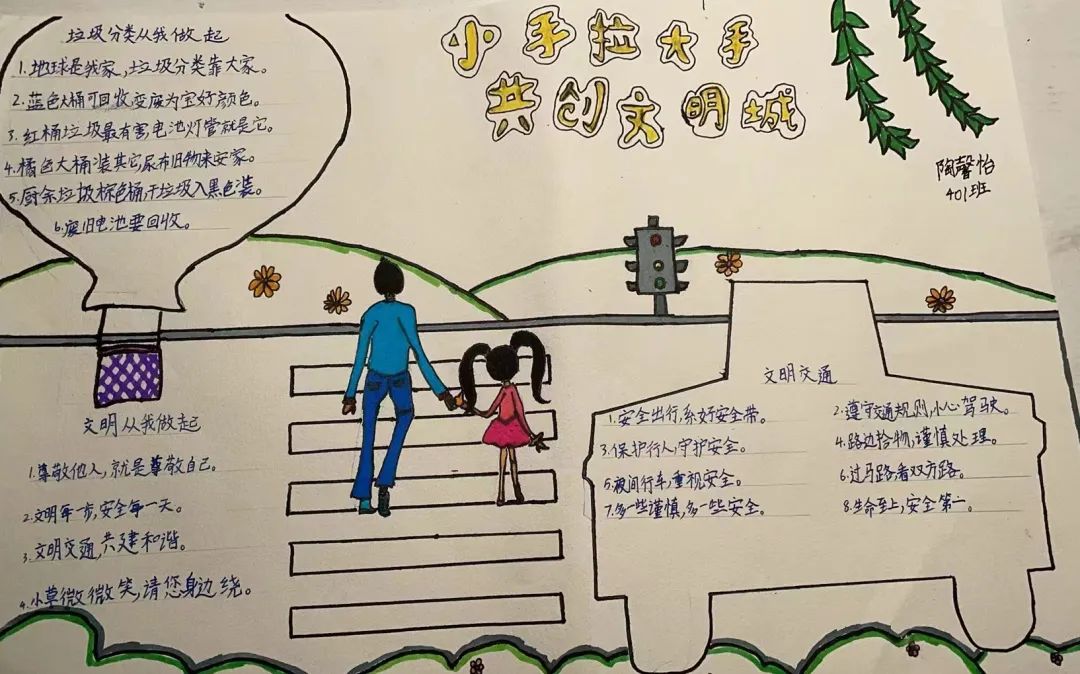 小手拉大手
共创文明城
陶馨怡
401班
垃圾分类从我做起
1.地球是我家,垃圾分类靠大家。
2.蓝色大桶可回收,变废为宝好颜色。
3.红桶垃圾最有害,电池灯管就是它。
4.橘色大桶装其它,尿布旧物来安家。
5.厨余垃圾棕色桶,干垃圾入黑色装。
6.废旧电池要回收。
文明从我做起
1.尊敬他人,就是尊敬自己。
2.文明每一步,安全每一天。
3.文明交通,共建和谐。
4.小草微微笑,请您身边绕。
文明交通
1.安全出行,系好安全带。
2.遵守交通规则,小心驾驶。
3.保护行人,守护安全。
4.路边拾物,谨慎处理。
5.夜间行车,重视安全。
6.过马路看双方路。
7.多一些谨慎,多一些安全。
8.生命至上,安全第一。